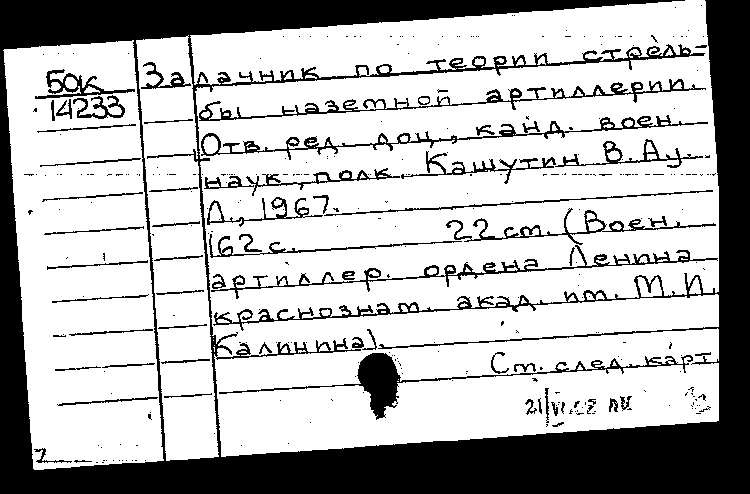 БОК
14233
Задачник по теории стрель=
бы наземной артиллерии.
Отв. ред. доц., канд. воен.
наук, полк. Кашутин В. А.
Л., 1967.
162 с. 22 см. (Воен.
артиллер. ордена Ленина
краснознам. акад. им. М. И.
Калинина).
См. след. карт.
21/VI
7